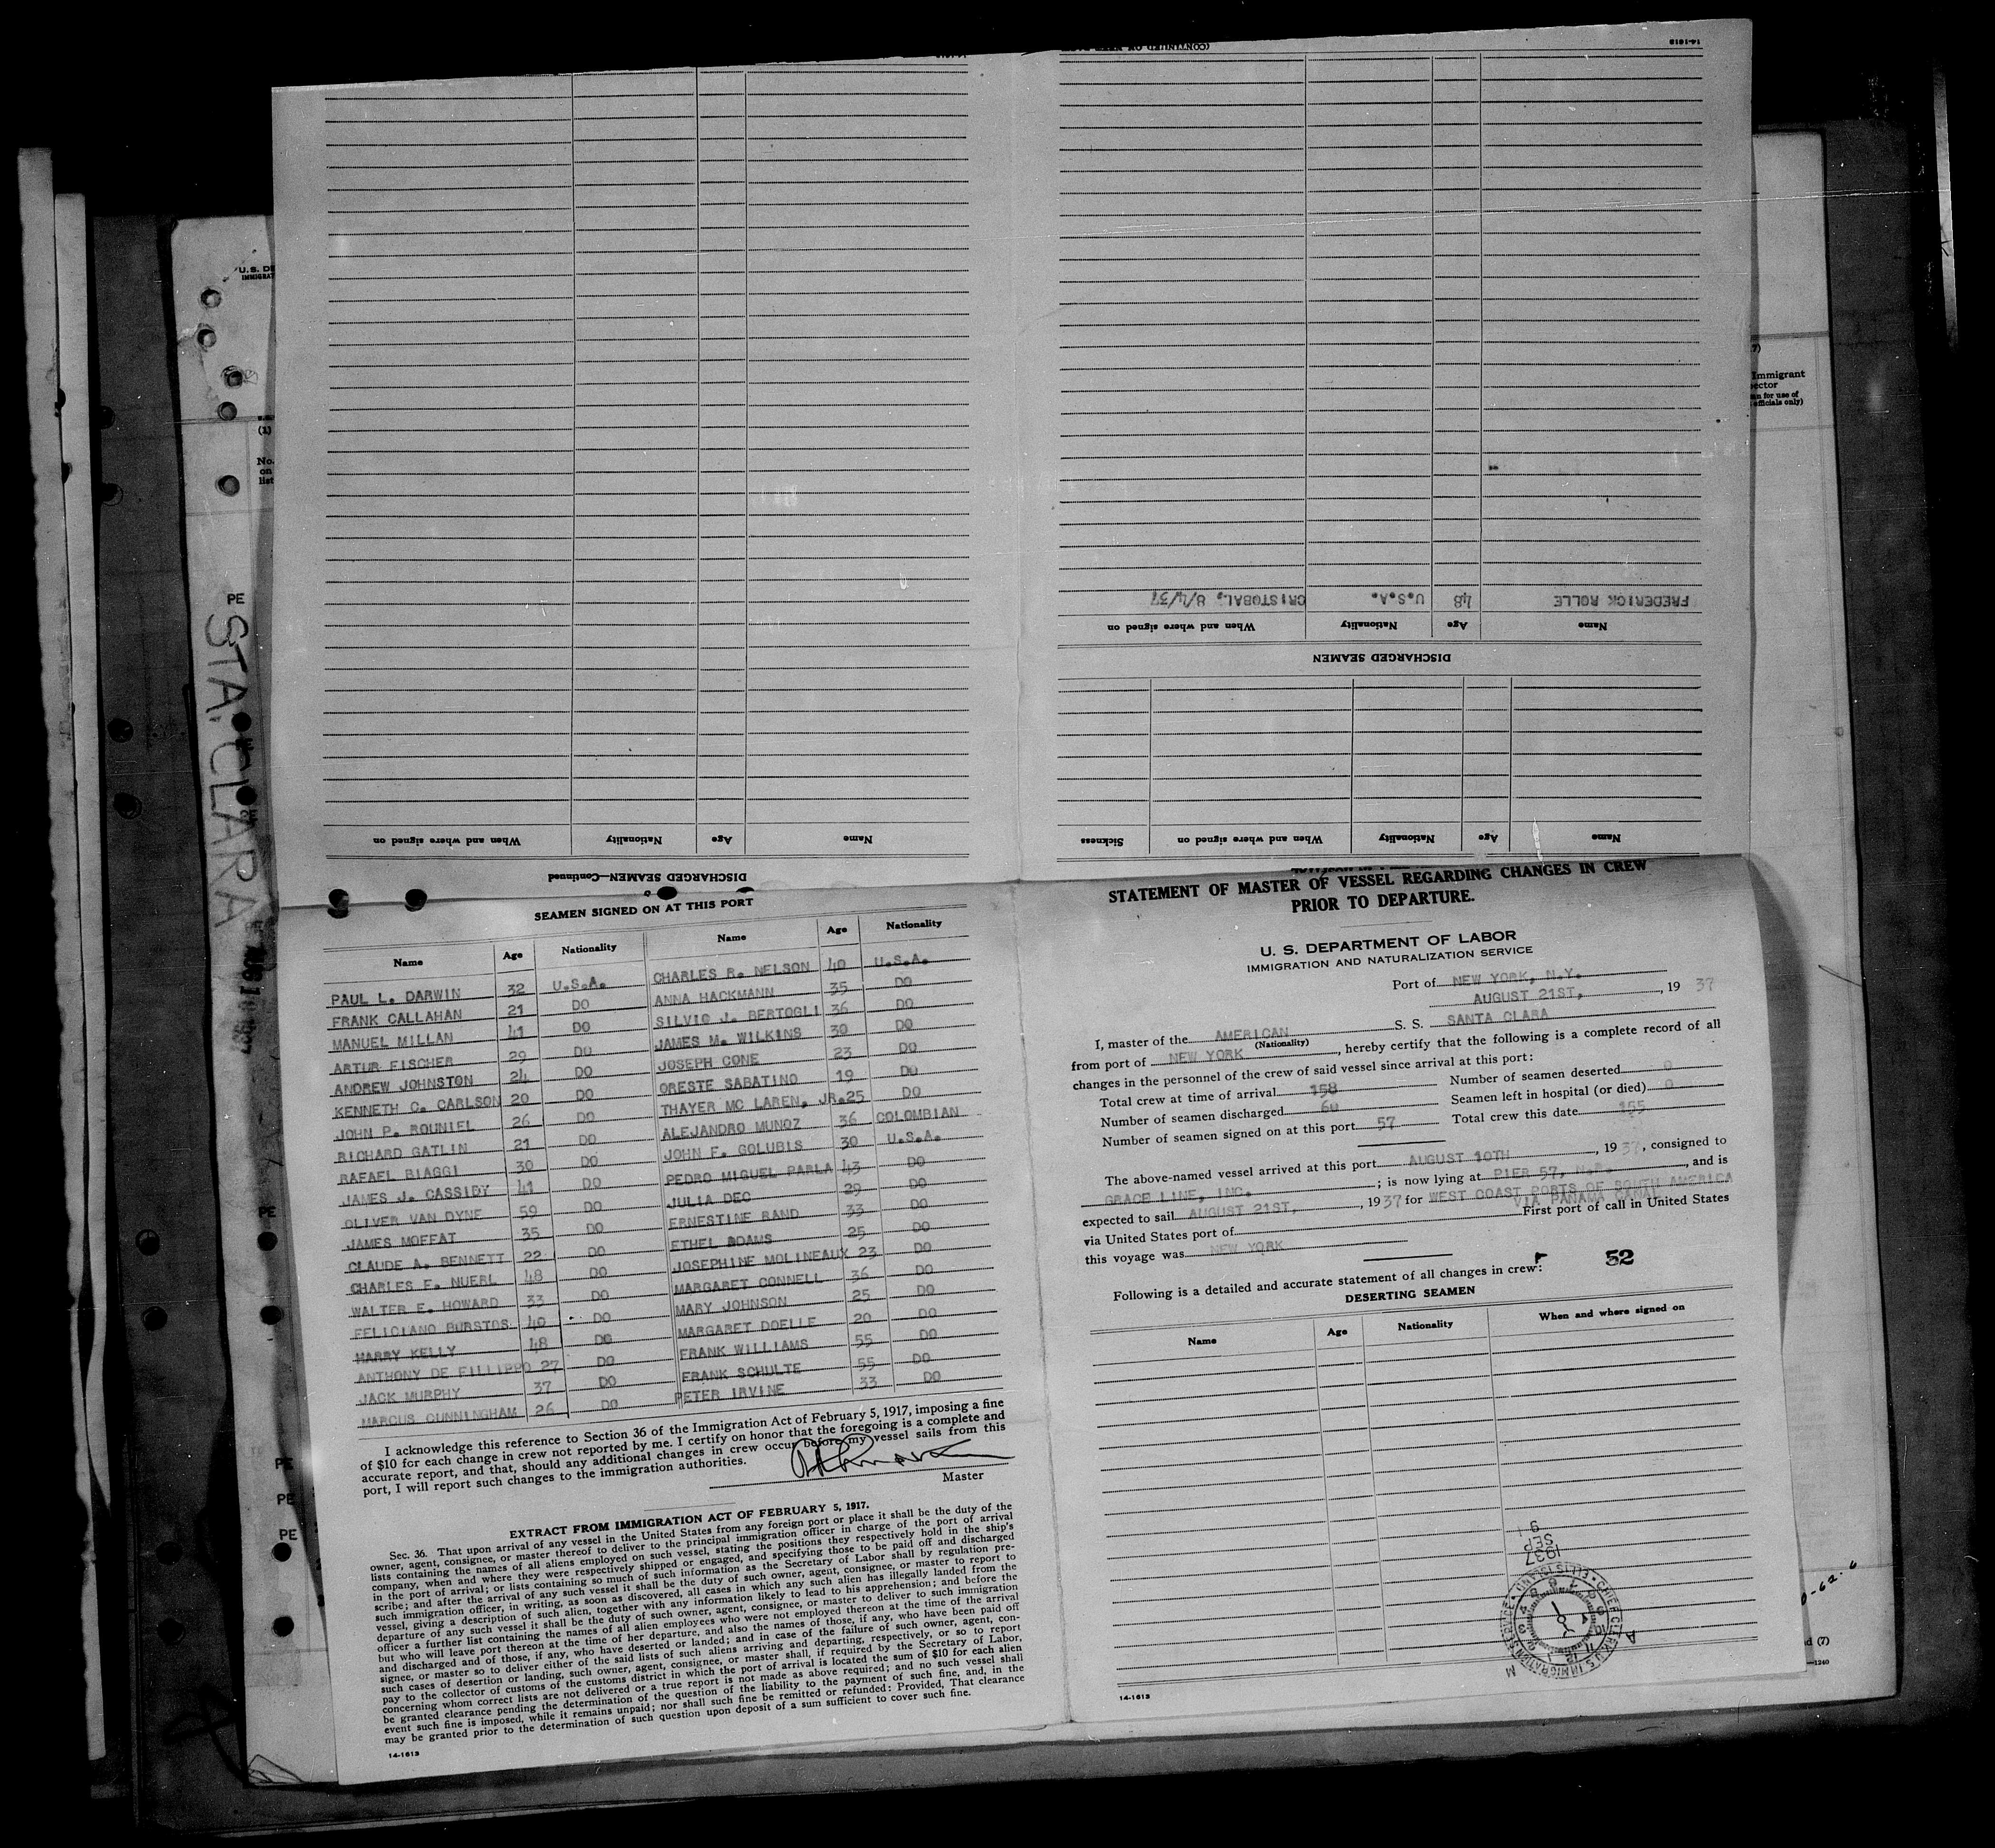 (CONTINUED ON
14-1613
FREDERICK ROLLE 48 U.S.A. CRISTOBAL, 8/4/37
Name Age Nationality When and where signed on
DISCHARGED SEAMEN
Name Age Nationality When and where signed on Sickness
Name Age Nationality When and where signed on
DISCHARGED SEAMEN—Continued
SEAMEN SIGNED ON AT THIS PORT
Name Age Nationality Name Age Nationality
PAUL L. DARWIN 32 U.S.A. CHARLES R. NELSON 40 U.S.A.
FRANK CALLAHAN 21 DO ANNA HACKMANN 35 DO
MANUEL MILLAN 41 DO SILVIO J. BERTOGLI 36 DO
ARTUR FISCHER 29 DO JAMES M. WILKINS 30 DO
ANDREW JOHNSTON 24 DO JOSEPH CONE 23 DO
KENNETH C. CARLSON 20 DO ORESTE SABATINO 19 DO
JOHN P. ROUNIEL 26 DO THAYER MC LAREN, JR. 25 DO
RICHARD GATLIN 21 DO ALEJANDRO MUNOZ 36 COLOMBIAN
RAFAEL BIAGGI 30 DO JOHN F. GOLUBIS 30 U.S.A.
JAMES J. CASSIDY 41 DO PEDRO MIGUEL PARLA 43 DO
OLIVER VAN DYNE 59 DO JULIA DEC 29 DO
JAMES MOFFAT 35 DO ERNESTINE RAND 33 DO
CLAUDE A. BENNETT 22 DO ETHEL ADAMS 25 DO
CHARLES F. NUERL 48 DO JOSEPHINE MOLINEAUX 23 DO
WALTER E. HOWARD 33 DO MARGARET CONNELL 36 DO
FELICIANO BURSTOS 40 DO MARY JOHNSON 25 DO
HARRY KELLY 48 DO MARGARET DOELLE 20 DO
ANTHONY DE FILLIPPO 27 DO FRANK WILLIAMS 55 DO
JACK MURPHY 37 DO FRANK SCHULTE 55 DO
MARCUS CUNNINGHAM 26 DO PETER IRVINE 33 DO
I acknowledge this reference to Section 36 of the Immigration Act of February 5, 1917, imposing a fine
of $10 for each change in crew not reported by me. I certify on honor that the foregoing is a complete and
accurate report, and that, should any additional changes in crew occur before my vessel sails from this
port, I will report such changes to the immigration authorities.
Master
EXTRACT FROM IMMIGRATION ACT OF FEBRUARY 5, 1917.
Sec. 36. That upon arrival of any vessel in the United States from any foreign port or place it shall be the duty of the
owner, agent, consignee, or master thereof to deliver to the principal immigration officer in charge of the port of arrival
lists containing the names of all aliens employed on such vessel, stating the positions they respectively hold in the ship's
company, when and where they were respectively shipped or engaged, and specifying those to be paid off and discharged
in the port of arrival; or lists containing so much of such information as the Secretary of Labor shall by regulation pre-
scribe; and after the arrival of any such vessel it shall be the duty of such owner, agent, consignee, or master to report to
such immigration officer, in writing, as soon as discovered, all cases in which any such alien has illegally landed from the
vessel, giving a description of such alien, together with any information likely to lead to his apprehension; and before the
departure of any such vessel it shall be the duty of such owner, agent, consignee, or master to deliver to such immigration
officer a further list containing the names of all alien employees who were not employed thereon at the time of the arrival
but who will leave port thereon at the time of her departure, and also the names of those, if any, who have been paid off
and discharged and of those, if any, who have deserted or landed; and in case of the failure of such owner, agent, con-
signee, or master so to deliver either of the said lists of such aliens arriving and departing, respectively, or so to report
such cases of desertion or landing, such owner, agent, consignee, or master shall, if required by the Secretary of Labor,
pay to the collector of customs of the customs district in which the port of arrival is located the sum of $10 for each alien
concerning whom correct lists are not delivered or a true report is not made as above required; and no such vessel shall
be granted clearance pending the determination of the question of the liability to the payment of such fine, and, in the
event such fine is imposed, while it remains unpaid; nor shall such fine be remitted or refunded: Provided, That clearance
may be granted prior to the determination of such question upon deposit of a sum sufficient to cover such fine.
14-1613
STATEMENT OF MASTER OF VESSEL REGARDING CHANGES IN CREW
PRIOR TO DEPARTURE.
U. S. DEPARTMENT OF LABOR
IMMIGRATION AND NATURALIZATION SERVICE
Port of NEW YORK, N.Y.
AUGUST 21ST, , 19 37
I, master of the AMERICAN S. S. SANTA CLARA
(Nationality)
from port of NEW YORK , hereby certify that the following is a complete record of all
changes in the personnel of the crew of said vessel since arrival at this port:
Total crew at time of arrival 158 Number of seamen deserted 0
Number of seamen discharged 60 Seamen left in hospital (or died) 0
Number of seamen signed on at this port 57 Total crew this date 155
The above-named vessel arrived at this port AUGUST 10TH , 19 37, consigned to
GRACE LINE, INC. ; is now lying at PIER 57, N.R. , and is
expected to sail AUGUST 21ST, , 19 37 for WEST COAST PORTS OF SOUTH AMERICA
VIA PANAMA CANAL
via United States port of First port of call in United States
this voyage was NEW YORK
52
Following is a detailed and accurate statement of all changes in crew:
DESERTING SEAMEN
Name Age Nationality When and where signed on
1937
SEP
CHIEF CLERK U.S. IMMIGRATION SERVICE ELLIS ISLAND
14-1613
STA. CLARA
U.S. DE
IMMIGRAT
(1)
No.
on
list
PE
PE
PE
PE
PE
7)
Immigrant
officials only)
d (7)
—1240